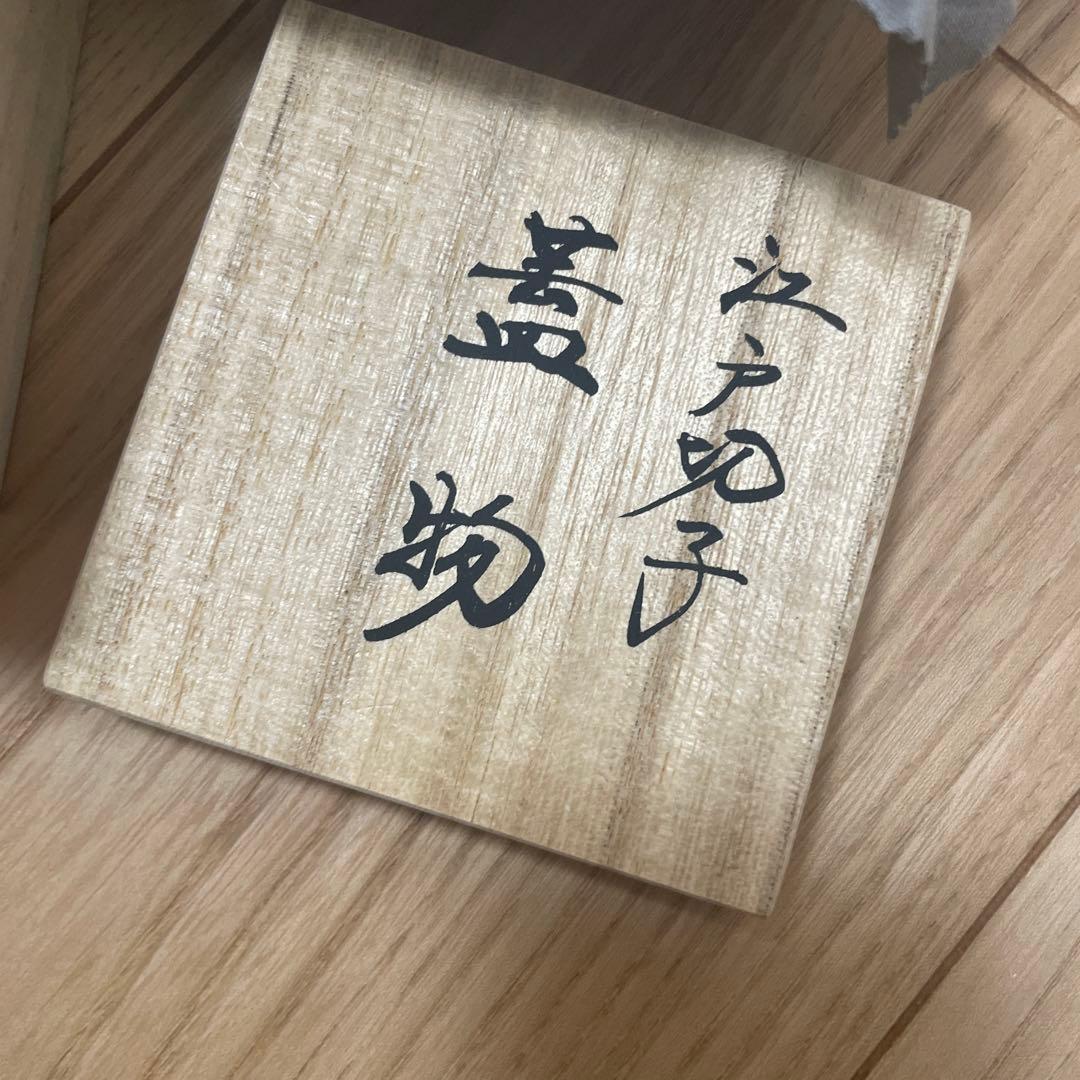 江戸切子
蓋物